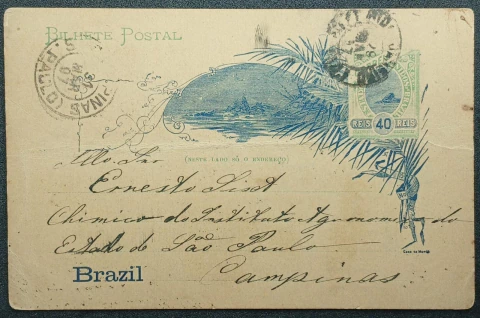 BILHETE POSTAL
REIS 40 REIS
(NESTE LADO SÓ O ENDEREÇO)
Illo. Snr
Ernesto Sixt
Chimico do Instituto Agronomico do
Estado de São Paulo
Brazil
Campinas
Casa da Moeda